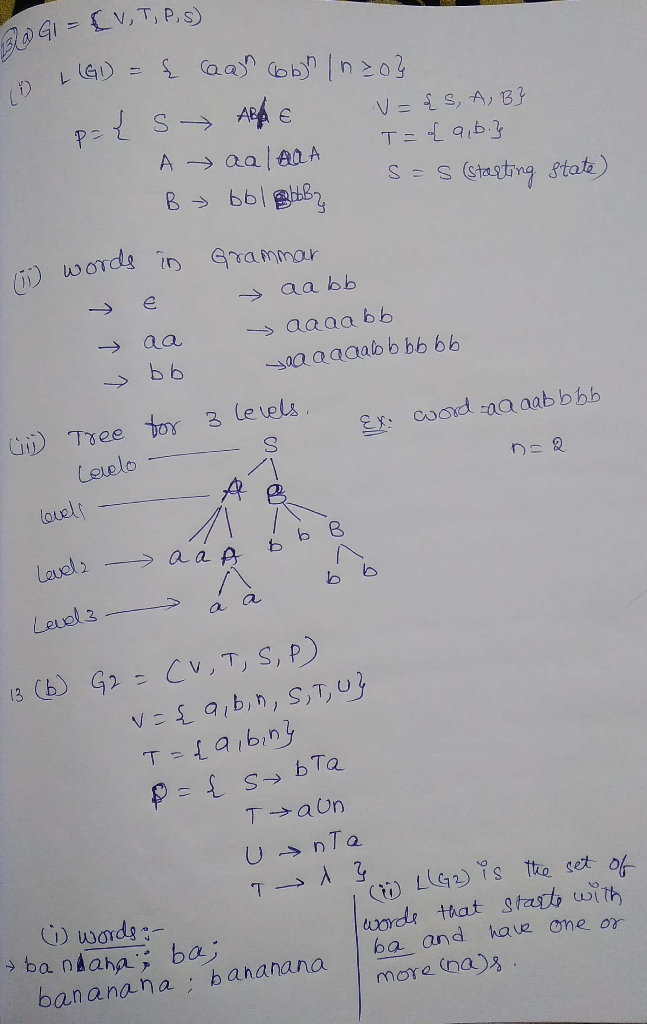 13 (a) G1 = { V, T, P, S)
(i) L (G1) = { (aa)ⁿ (bb)ⁿ | n ≥ 0 }
P = { S → AB ϵ
V = { S, A, B }
A → aa | aaA
T = { a, b }
B → bb | bbB }
S = S (starting state)
(ii) words in Grammar
→ ϵ → aabb
→ aa → aaaabb
→ bb → aaaaaabbbbbb
(iii) Tree for 3 levels. Ex: word = aaaabbbb
Level0 S n = 2
level1 A B
Level2 → a a A b b B
Level3 → a a b b
13 (b) G2 = (V, T, S, P)
V = { a, b, n, S, T, U }
T = { a, b, n }
P = { S → bTa
T → aUn
U → nTa
T → λ }
(i) words :-
→ banana ; ba ;
bananana ; bananana
(ii) L(G2) is the set of
words that starts with
ba and have one or
more (na)s.